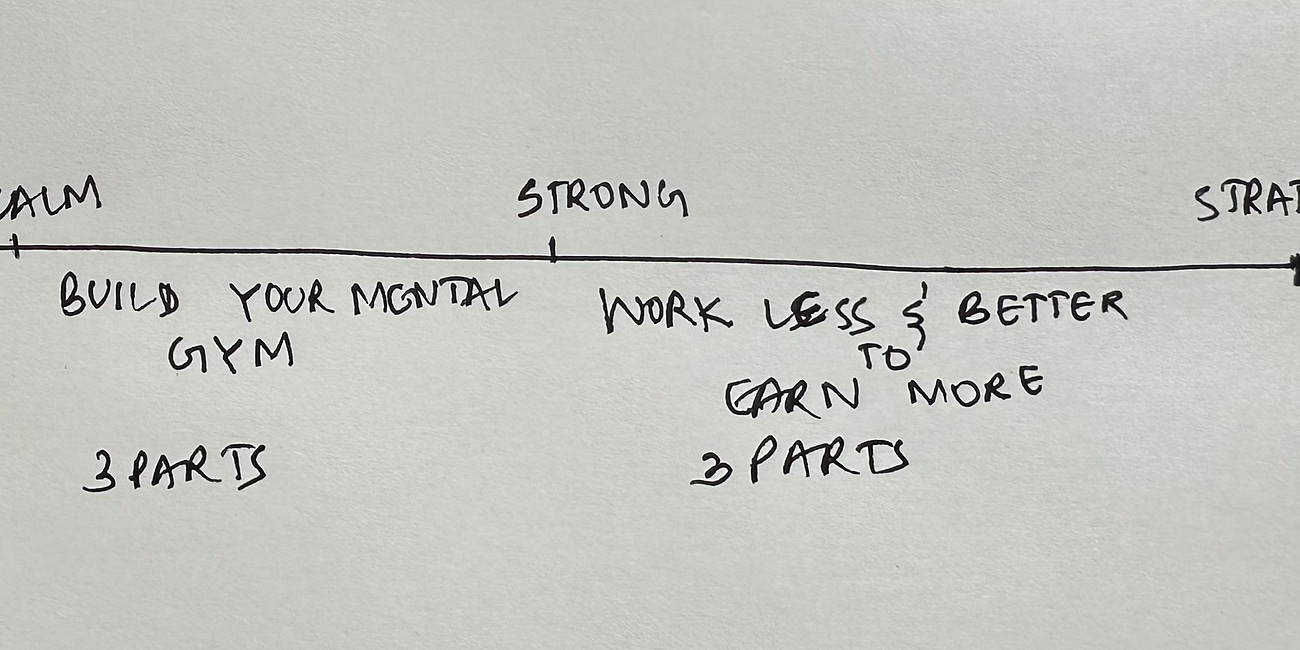 CALM STRONG STRAT
BUILD YOUR MENTAL WORK LESS & BETTER
GYM TO
EARN MORE
3 PARTS 3 PARTS